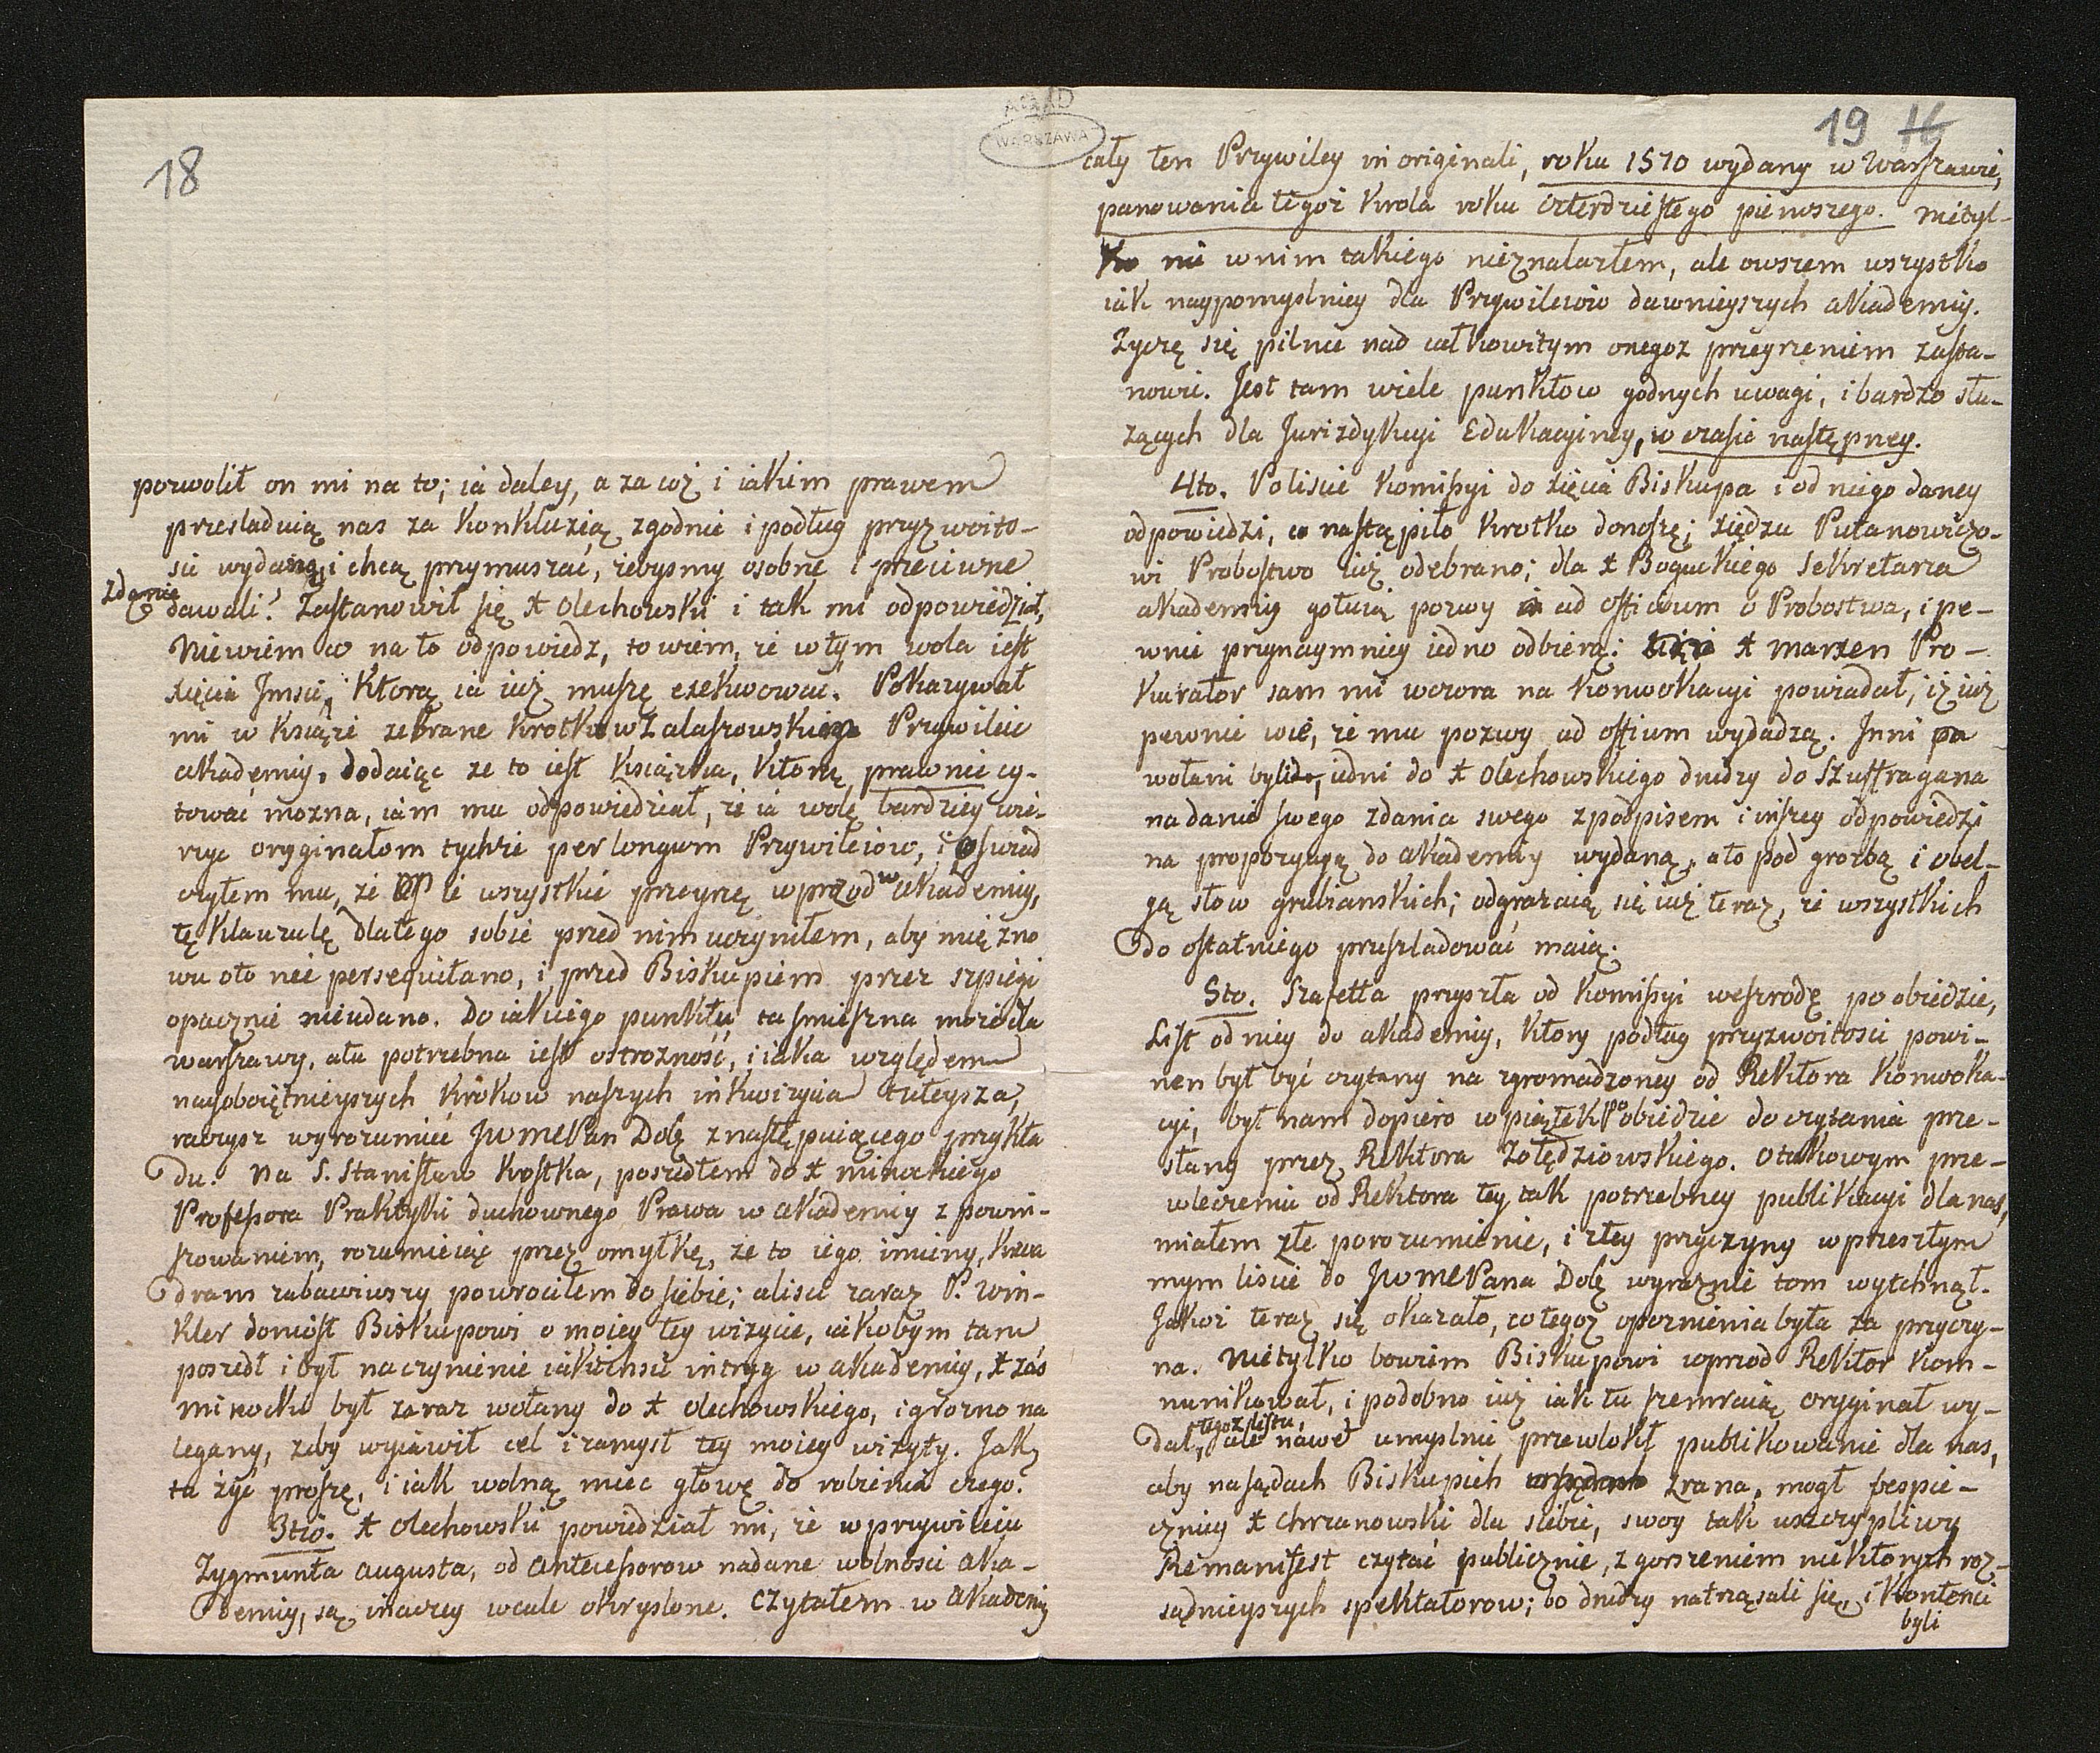 18
pozwolił on mi na to; ia daley, a za coż i iakim prawem
przesladuią nas za Konkluzią zgodnie i podług przyzwoito-
sci wydaną, i chcą przymuszać, żebysmy osobne i przeciwne
zdanie
dawali? Zastanowił się X Olechowski i tak mi odpowiedział,
Niewiem co na to odpowiedz, to wiem, że w tym wola iest
Xięcia Jmsci, Ktorą ia iuż muszę exekwować. Pokazywał
mi w Książe zebrane Krotko w Zalaszowskim Przywileie
Akademiy, dodaiąc ze to iest Ksiązka, Ktorą prawnie cy-
tować mozna, iam mu odpowiedział, że ia wolę bardziey wie-
rzyc oryginałom tychże per longum Przywileiow, i oswiad
czyłem mu, że ie wszystkie przeyrzę wprzod w Akademiy,
tę Klauzulę dlatego sobie przed nim uczyniłem, aby mię zno
wu oto nie persequitano, i przed Biskupiem przez szpiegi
opacznie nieudano. Do iakiego punktu ta smieszna może dla
Warszawy, a tu potrzebna iest ostrozność, i iaka względem
nayoboiętnieyszych Krokow naszych inkwizycia tuteysza,
raczysz wyrozumieć JWMCPan Dobr. z następuiącego przykła
du. Na S. Stanisław Kostka, poszedłem do X Minockiego
Professora Praktyki duchownego Prawa w Akademiy z powin-
szowaniem, rozumieiąc przez omyłkę, że to iego imieny, Kwa
drans zabawiwszy powrociłem do siebie; alisci zaraz P. Win-
kler doniosł Biskupowi o moiey tey wizycie, iakobym tam
poszedł i był na czynienie iakichsić intryg w Akademiy, X zaś
Minocki był zaraz wołany do X Olechowskiego, i grozno na
legany, zeby wyiawił cel i zamysł tey moiey wizyty. Jakż
ta żyć proszę, i iak wolną miec głowę do robienia czego?
3tio. X Olechowski powiedział mi, że w przywileiu
Zygmunta Augusta, od Antecessorow nadane wolnosci Aka-
demiy, są inaczey wcale okryslone. Czytałem w Akademiy
AGAD
WARSZAWA
19 16
cały ten Przywiley in originali, roku 1570 wydany w Warszawie,
panowania tegoż Krola roku czterdziestego pierwszego. Nietyl-
ko nic w nim takiego nieznalazłem, ale owszem wszystko
iak naypomyslniey dla Przywileiow dawnieyszych Akademiy.
Zyczę się pilnie nad całkowitym onegoz przeyrzeniem zasta-
nowic. Jest tam wiele punktow godnych uwagi, i bardzo słu-
zących dla Jurizdykcyi Edukacyiney, w czasie następney.
4to. Po liscie Komissyi do Xięcia Biskupa i od niego daney
odpowiedzi, co nastąpiło Krotko donoszę; Xiędzu Putanowiczo-
wi Probostwo iuż odebrano; dla X Boguckiego Sekretarza
Akademiy gotuią pozwy ad officium o Probostwa, i pe-
wnie przynaymniey iedno odbiorą; X Marxen Pro-
kurator sam mi wczora na Konwokacyi powiadał, iż iuż
pewnie wie, że mu pozwy ad officium wydadzą. Inni po
wołani byli, iedni do X Olechowskiego drudzy do Szuffragana
na danie swego zdania swego z podpisem i inszey odpowiedzi
na propozycyą do Akademiy wydaną, a to pod grozbą i obel-
gą słow grubianskich; odgrazaią się iuż teraz, że wszystkich
do ostatniego przesladować maią.
5to. Sztafetta przyszła od Komissyi we szrodę po obiedzie,
List od niey do Akademiy, Ktory podług przyzwoitosci powi-
nen był być czytany na zgromadzoney od Rektora Konwoka-
cyi, był nam dopiero w piątek po obiedzie do czytania prze-
słany przez Rektora Żołędziowskiego. O takowym prze-
wleczeniu od Rektora tey tak potrzebney publikacyi dla nas,
miałem złe porozumienie, i z tey przyczyny w przeszłym
mym liscie do JWMCPana Dobr. wyraznie tom wytchnął.
Jakoż teraz się okazało, co tegoż opoznienia była za przyczy-
na. Nietylko bowiem Biskupowi wprzod Rektor kom-
munikował, i podobno iuż iak tu szemraią oryginał wy-
tegoz listu,
dał, ale nawet umyslnie przewlokł publikowanie dla nas,
aby na sądach Biskupich zrana, mogł bespie-
czniey X Chrzanowski dla siebie, swoy tak uszczypliwy
Remanifest czytać publicznie, z gorszeniem niektorych roz-
sądnieyszych spektatorow; bo drudzy natrząsali się, i Kontenci
byli